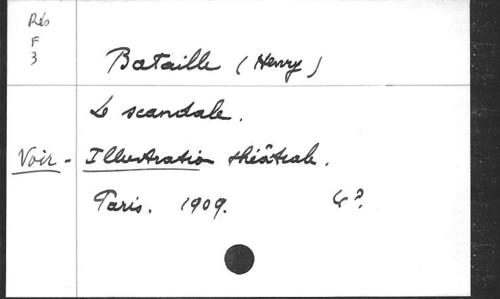 Rés
F
3
Bataille (Henry)
Le scandale.
Voir - Illustration théâtrale.
Paris. 1909. 4°.